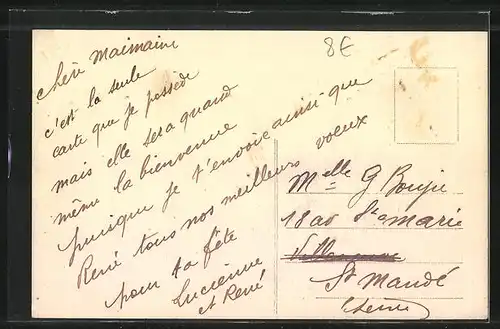 chère maimaine
c'est la seule
carte que je possède
mais elle sera quand
même la bienvenue
puisque je t'envoie ainsi que
René tous nos meilleurs voeux
pour ta fête
Lucienne
et René
8€
Melle G
18 av Ste marie
St Mandé
(Seine)